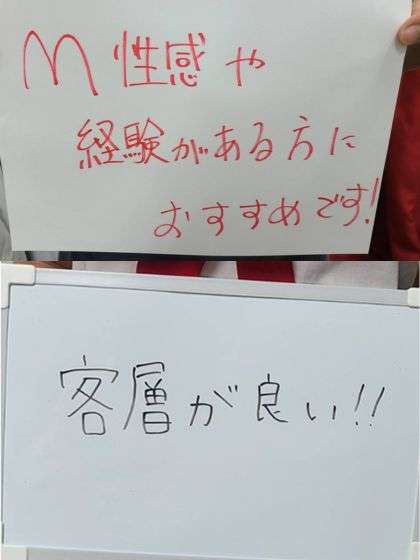 M性感や
経験がある方に
おすすめです!
客層が良い!!